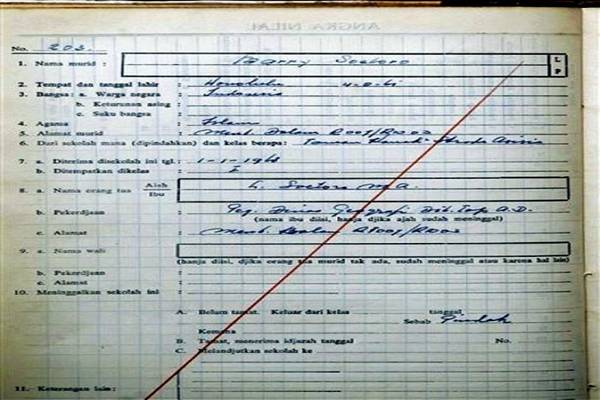 ANGKA NILAI
No. 203.
1. Nama murid : Barry Soetoro L P
2. Tempat dan tanggal lahir : Honolulu 4-8-61
3. Bangsa: a. Warga negara : Indonesia
b. Keturunan asing :
c. Suku bangsa :
4. Agama : Islam
5. Alamat murid : Ment. Dalam R001/Rw003
6. Dari sekolah mana (dipindahkan) dan kelas berapa:
7. a. Diterima disekolah ini tgl. : 1-1-1968
b. Ditempatkan dikelas : I
8. a. Nama orang tua Ajah Ibu : L. Soetoro M.A.
b. Pekerdjaan : Peg. Dinas Geografi Dit. Top. A.D.
(nama ibu diisi, hanja djika ajah sudah meninggal)
c. Alamat : Ment. Dalam R001/Rw003
9. a. Nama wali :
(hanja diisi, djika orang tua murid tak ada, sudah meninggal atau karena hal lain)
b. Pekerdjaan :
c. Alamat :
10. Meninggalkan sekolah ini :
A. Belum tamat. Keluar dari kelas tanggal
Sebab Pindah
Kemana
B. Tamat, menerima idjazah tanggal No.
C. Melandjutkan sekolah ke
11. Keterangan lain :